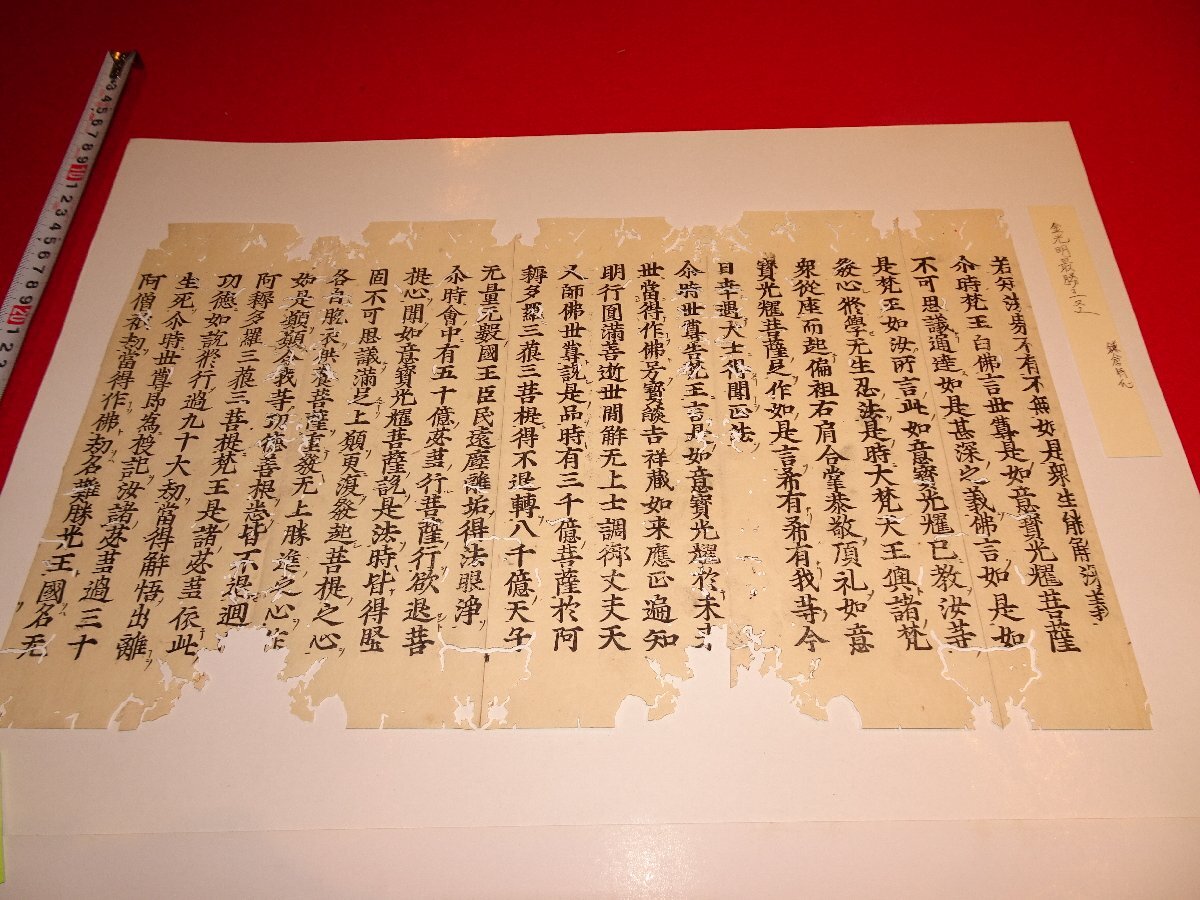 金光明最勝王文
鎌倉時代
若知法界不有不無如是衆生能解深義
尒時梵王白佛言世尊是如意寳光耀菩薩
不可思議通達如是甚深之義佛言如是如
是梵王如汝所言此如意寳光耀已教汝等
發心修學无生忍法是時大梵天王與諸梵
衆從座而起偏袒右肩合掌恭敬頂礼如意
寳光耀菩薩足作如是言希有希有我等今
日幸遇大士得聞正法
尒時世尊告梵王言是如意寳光耀於未来
世當得作佛号寳𦦨吉祥藏如来應正遍知
明行圎滿善逝世間解无上士調御丈夫天
又師佛世尊說是品時有三千億菩薩於阿
耨多羅三藐三菩提得不退轉八千億天子
无量无數國王臣民遠塵離垢得法眼淨
尒時會中有五十億苾蒭行菩薩行欲退菩
提心聞如意寳光耀菩薩說是法時皆得堅
固不可思議滿足上願更復發起菩提之心
各自脫衣供養菩薩重發无上勝進之心作
如是願願令我等功德善根悉皆不退迴
阿耨多羅三藐三菩提梵王是諸苾蒭依此
功德如說修行過九十大劫當得解悟出離
生死尒時世尊即為授記汝諸苾蒭過三十
阿僧祇劫當得作佛劫名難勝光王國名无